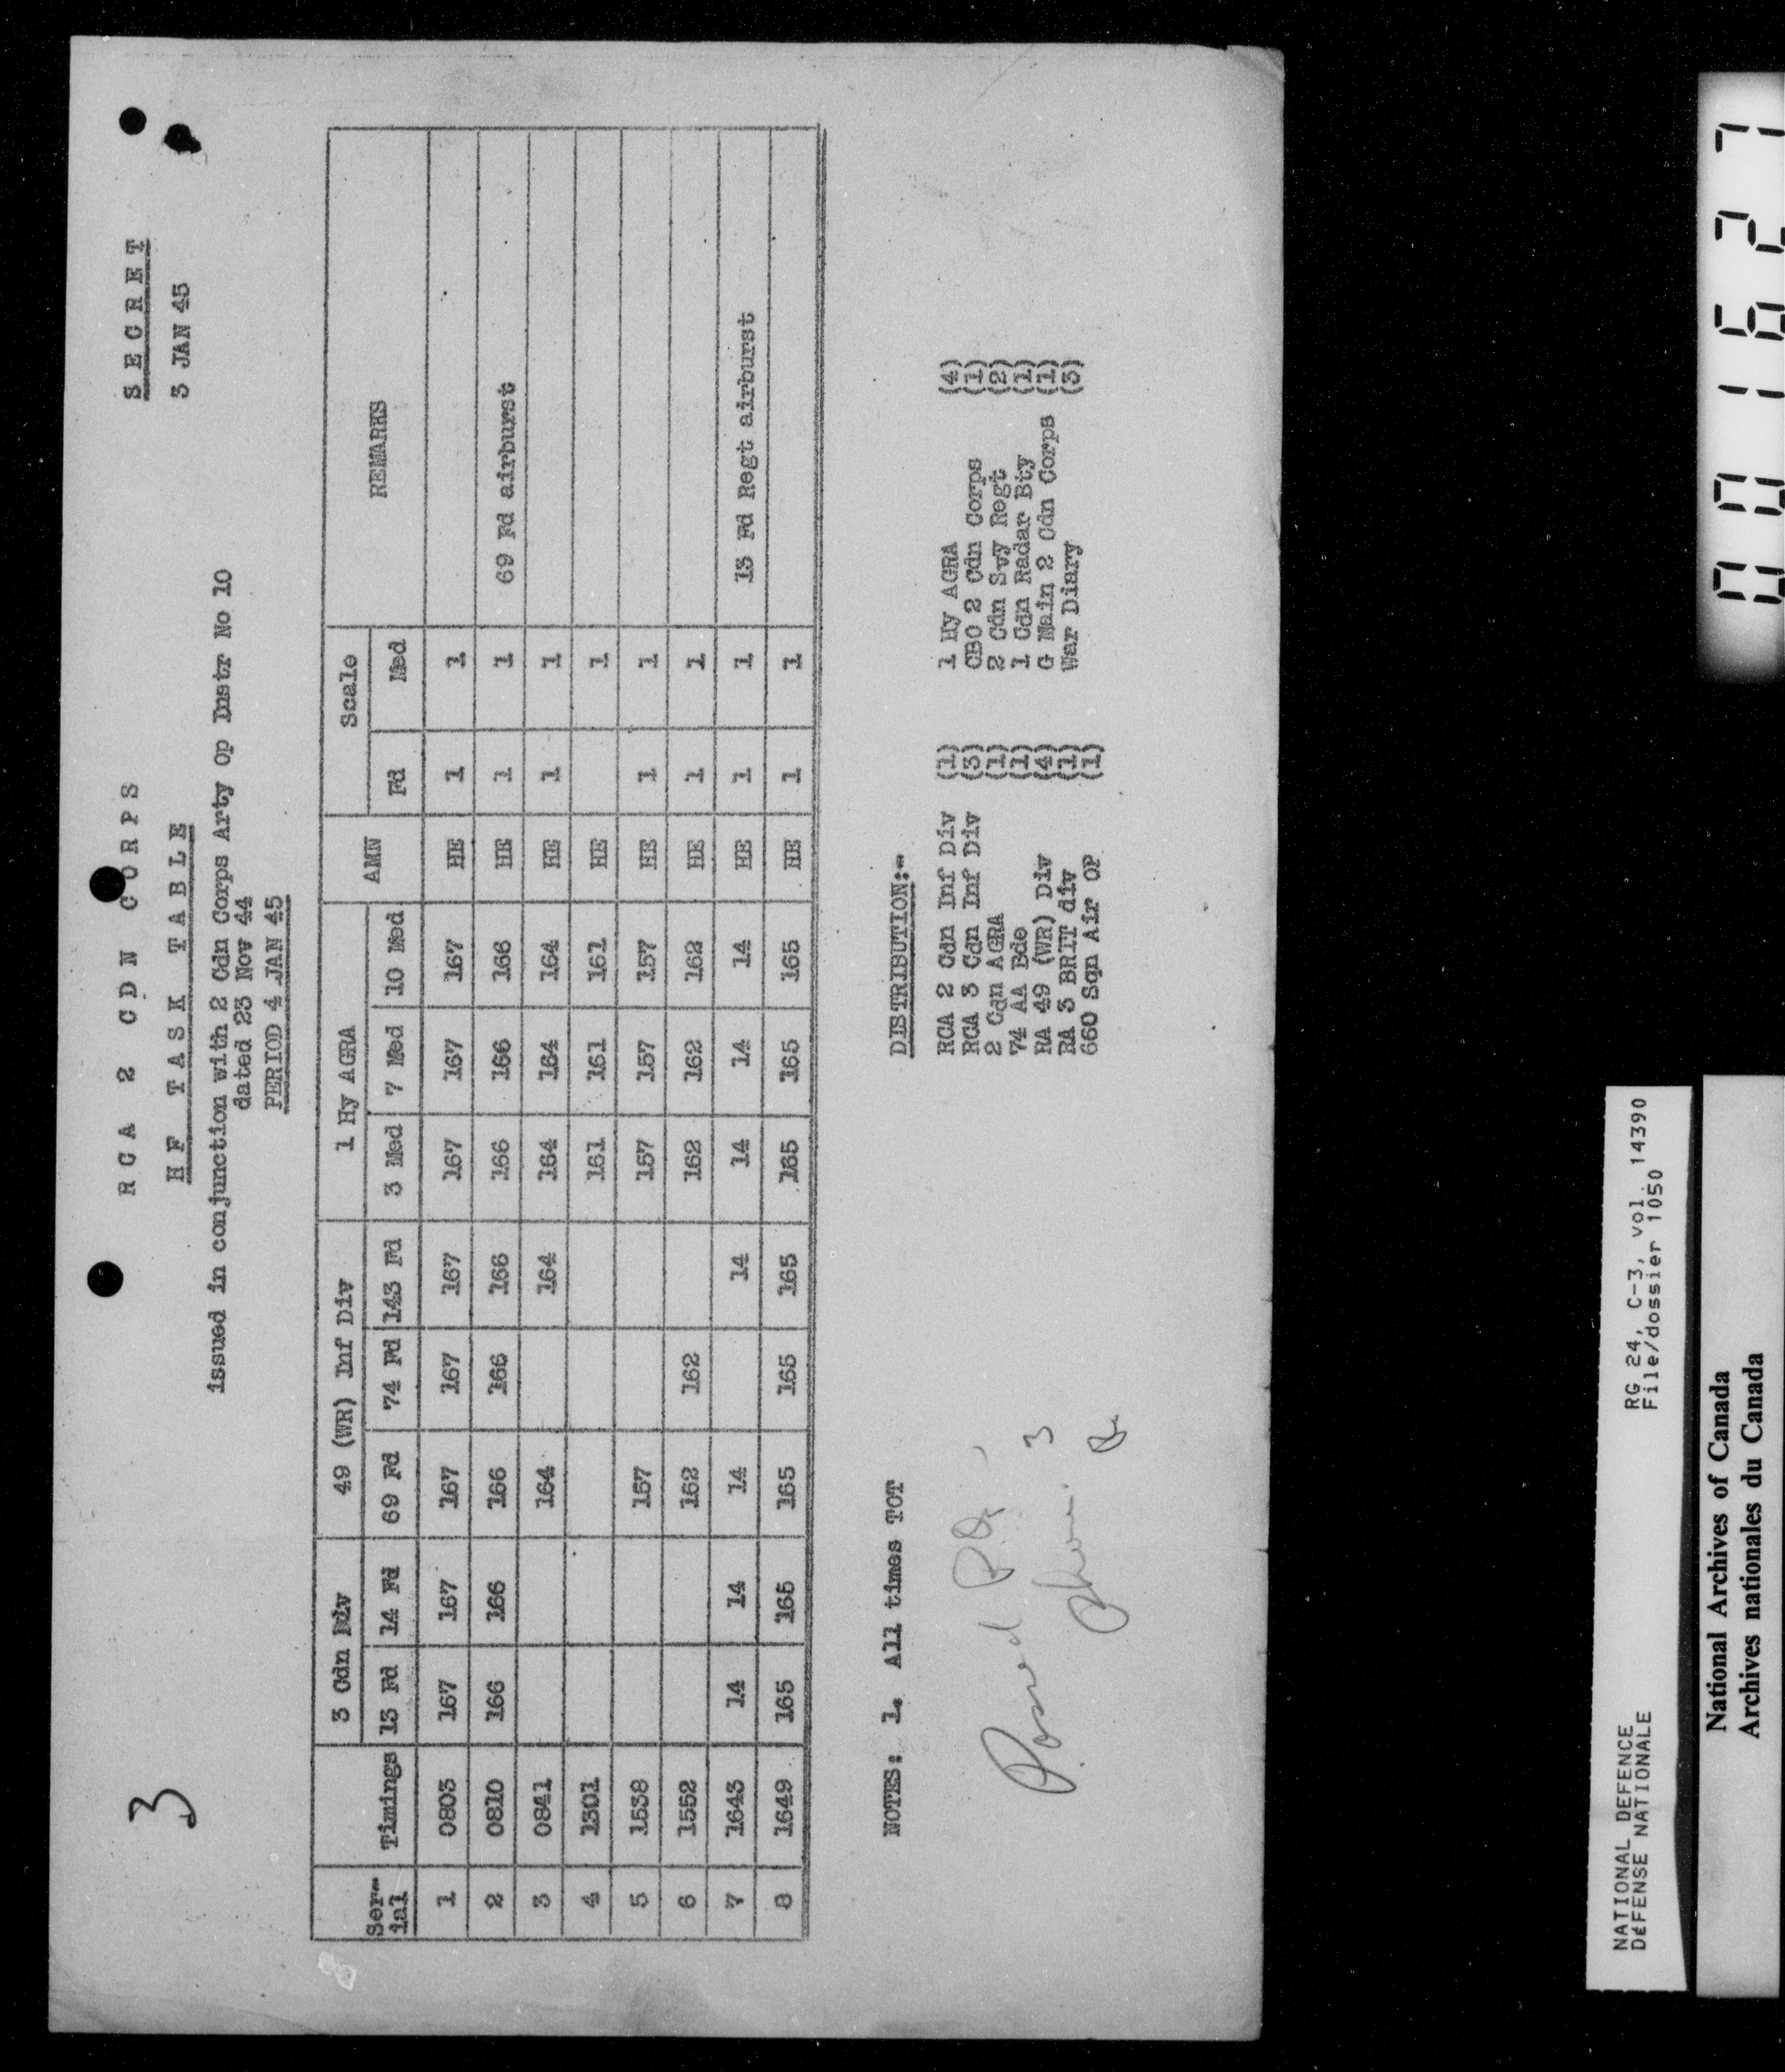 3
SECRET
3 JAN 45
RCA 2 CDN CORPS
HF TASK TABLE
issued in conjunction with 2 Cdn Corps Arty Op Instr No 10
dated 23 Nov 44
PERIOD 4 JAN 45
3 Cdn Div 49 (WR) Inf Div 1 Hy AGRA AMN Scale REMARKS
Ser-
ial Timings 13 Fd 14 Fd 69 Fd 74 Fd 143 Fd 3 Med 7 Med 10 Med Fd Med
1 0803 167 167 167 167 167 167 167 167 HE 1 1
2 0810 166 166 166 166 166 166 166 166 HE 1 1 69 Fd airburst
3 0841 164 164 164 164 164 HE 1 1
4 1301 161 161 161 HE 1
5 1538 157 157 157 157 HE 1 1
6 1552 162 162 162 162 162 HE 1 1
7 1643 14 14 14 14 14 14 14 HE 1 1 13 Fd Regt airburst
8 1649 165 165 165 165 165 165 165 165 HE 1 1
NOTES: 1. All times TOT
DISTRIBUTION:-
RCA 2 Cdn Inf Div (1) 1 Hy AGRA (4)
RCA 3 Cdn Inf Div (3) CBO 2 Cdn Corps (1)
2 Cdn AGRA (1) 2 Cdn Svy Regt (2)
74 AA Bde (1) 1 Cdn Radar Bty (1)
RA 49 (WR) Div (4) G Main 2 Cdn Corps (1)
RA 3 BRIT div (1) War Diary (3)
660 Sqn Air OP (1)
3
NATIONAL DEFENCE RG 24, C-3, vol. 14390
DÉFENSE NATIONALE File/dossier 1050
National Archives of Canada
Archives nationales du Canada
001627